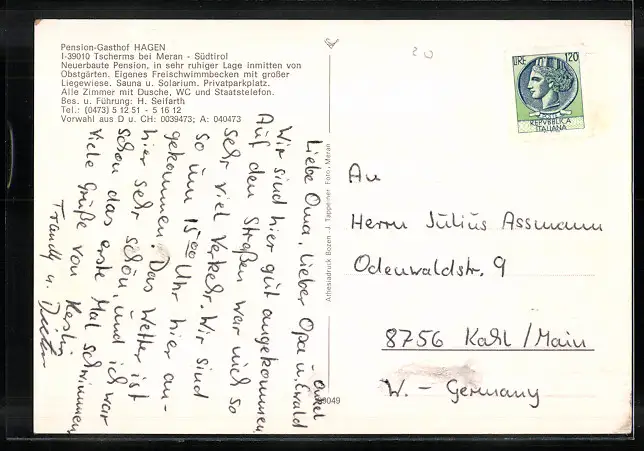 Pension-Gasthof HAGEN
I-39010 Tscherms bei Meran - Südtirol
Neuerbaute Pension, in sehr ruhiger Lage inmitten von
Obstgärten. Eigenes Freischwimmbecken mit großer
Liegewiese. Sauna u. Solarium. Privatparkplatz.
Alle Zimmer mit Dusche, WC und Staatstelefon.
Bes. u. Führung: H. Seifarth
Tel.: (0473) 5 12 51 - 5 16 12
Vorwahl aus D u. CH: 0039473; A: 040473
Liebe Oma, lieber Opa u. Onkel Ewald
Wir sind hier gut angekommen.
Auf den Straßen war nich so
sehr viel Verkehr. Wir sind
so um 15⁰⁰ Uhr hier an-
gekommen. Das Wetter ist
hier sehr schön, und ich war
schon das erste Mal schwimmen
Viele Grüße von Kerstin
Traudl u. Dieter
Athesiadruck Bozen J. Tappeiner Foto, Meran
9049
20
LIRE 120
REPVBBLICA
ITALIANA
An
Herrn Julius Assmann
Odenwaldstr. 9
8756 Kahl / Main
W. - Germany